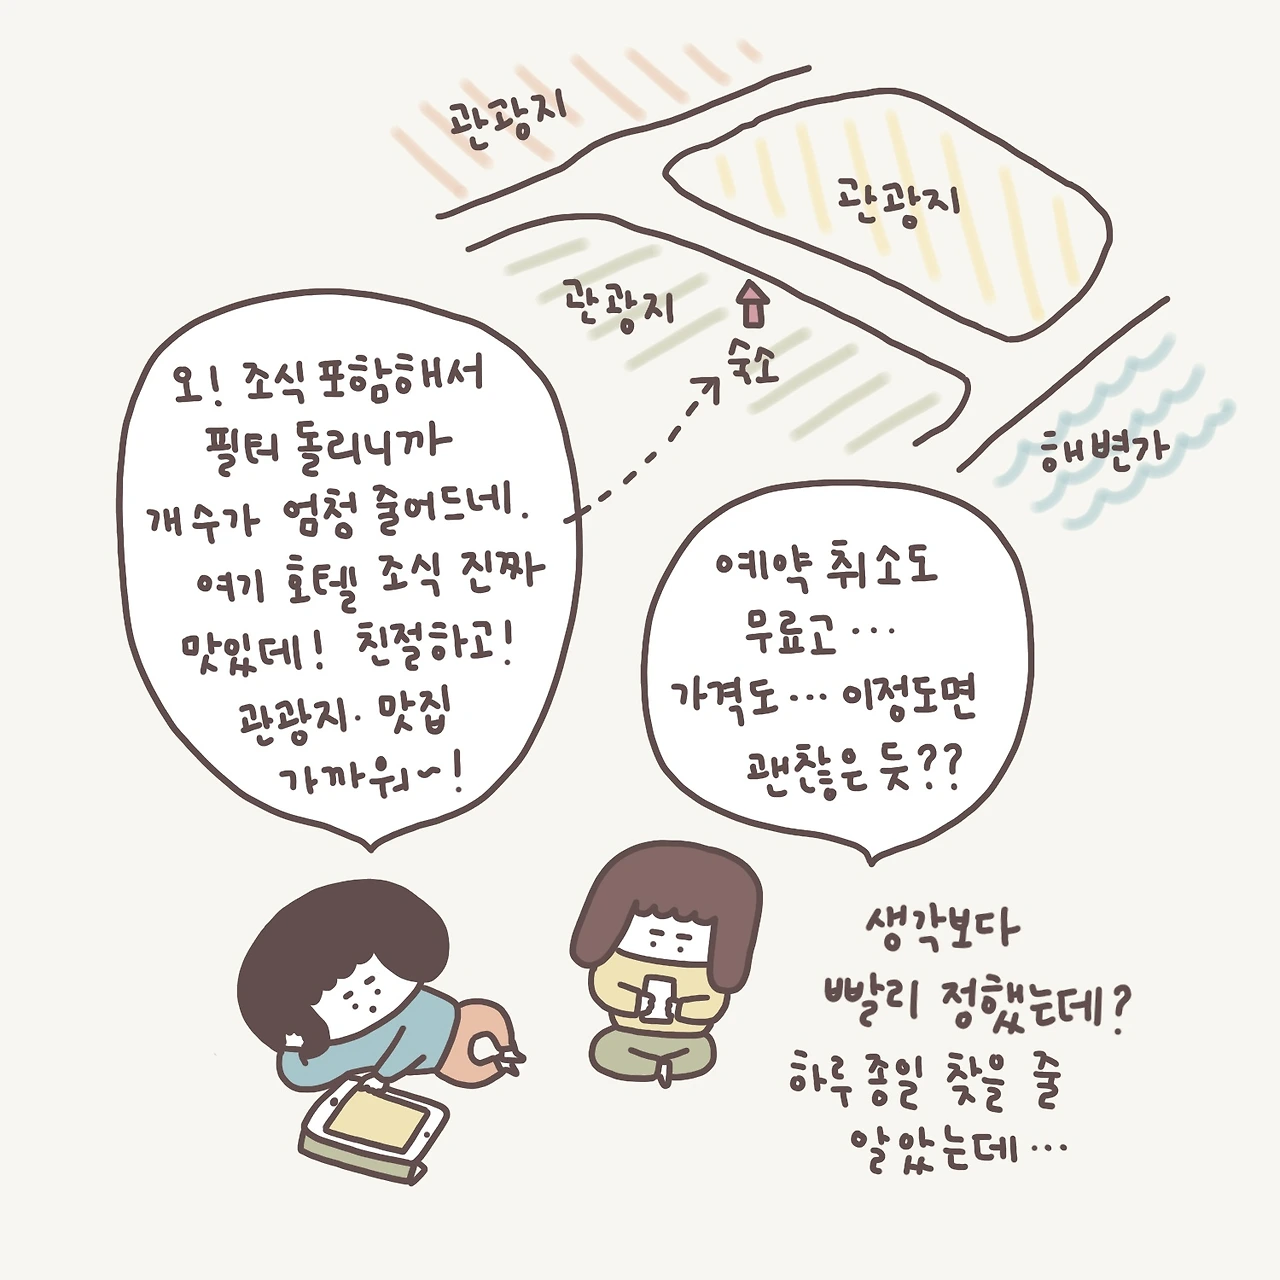 관광지
관광지
관광지
숙소
해변가
오! 조식 포함해서
필터 돌리니까
개수가 엄청 줄어드네.
여기 호텔 조식 진짜
맛있데! 친절하고!
관광지·맛집
가까워~!
예약 취소도
무료고...
가격도... 이정도면
괜찮은 듯??
생각보다
빨리 정했는데?
하루종일 찾을 줄
알았는데...